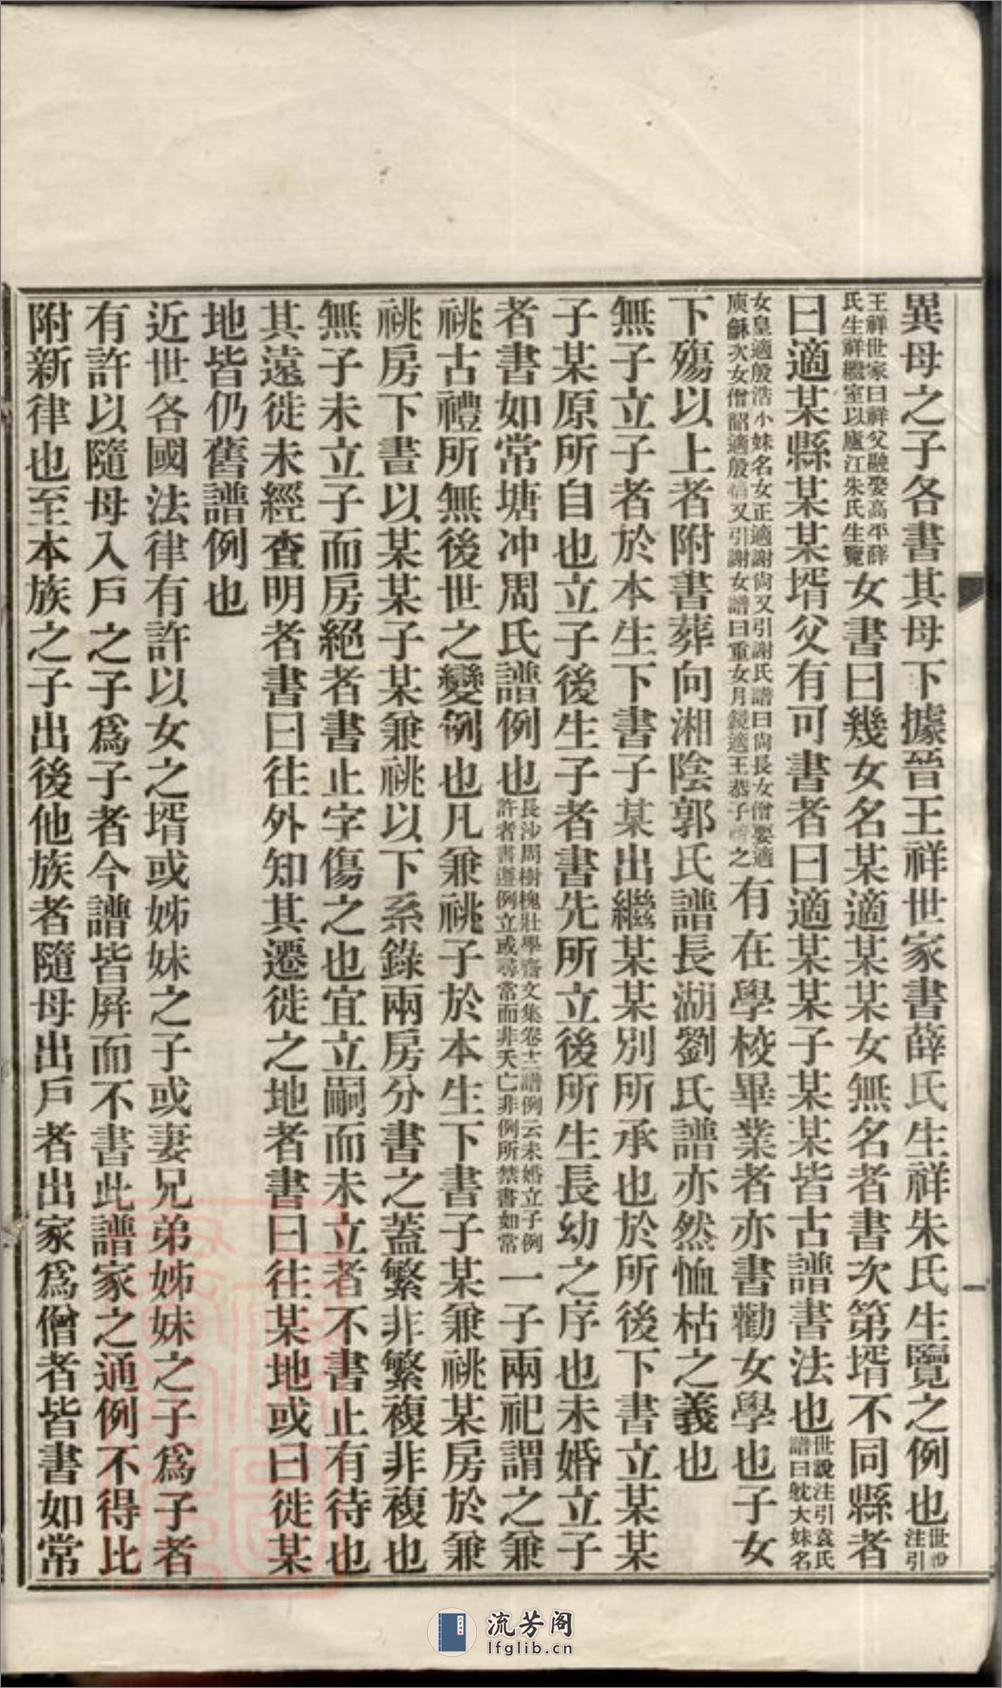 異母之子各書其母下據晉王祥世家書薛氏生祥朱氏生覽之例也世說注引
王祥世家曰祥父融娶高平薛氏生祥繼室以廬江朱氏生覽女書曰幾女名某適某某女無名者書次第壻不同縣者
曰適某縣某某壻父有可書者曰適某某子某某皆古譜書法也世說注引袁氏譜曰躭大妹名
女皇適殷浩小妹名女正適謝尙又引謝氏譜曰尙長女僧要適庾龢次女僧韶適殷又引謝女譜曰重女月鏡適王恭子之有在學校畢業者亦書勸女學也子女
下殤以上者附書葬向湘陰郭氏譜長湖劉氏譜亦然恤枯之義也
無子立子者於本生下書子某出繼某某別所承也於所後下書立某某
子某原所自也立子後生子者書先所立後所生長幼之序也未婚立子
者書如常塘冲周氏譜例也長沙周樹槐壯學齋文集卷十二譜例云未婚立子例許者書遵例立或尋常而非夭亡非例所禁書如常一子兩祀謂之兼
祧古禮所無後世之變例也凡兼祧子於本生下書子某兼祧某房於兼
祧房下書以某某子某兼祧以下系錄兩房分書之蓋繁非繁複非複也
無子未立子而房絕者書止字傷之也宜立嗣而未立者不書止有待也
其遠徙未經查明者書曰往外知其遷徙之地者書曰往某地或曰徙某
地皆仍舊譜例也
近世各國法律有許以女之壻或姊妹之子或妻兄弟姊妹之子為子者
有許以隨母入戶之子為子者今譜皆屛而不書此譜家之通例不得比
附新律也至本族之子出後他族者隨母出戶者出家為僧者皆書如常
流芳阁
lfglib.cn